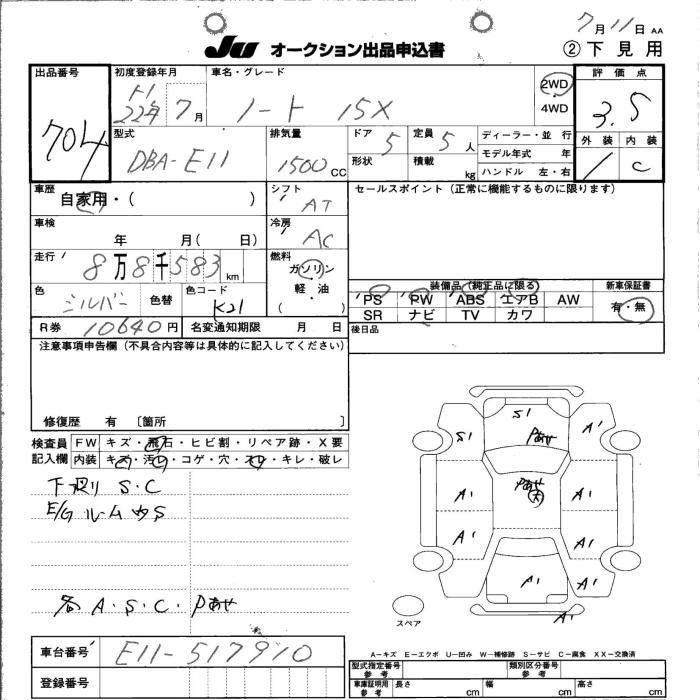 7月11日 AA
JU オークション出品申込書 ②下見用
出品番号 初度登録年月 車名・グレード 評価点
704 H22年7月 ノート 15X 2WD 4WD 3.5
型式 排気量 ドア 定員 ディーラー・並行 外装 内装
DBA-E11 1500CC 5 5人 モデル年式 年 1 C
形状 積載 kg ハンドル 左・右
車歴 シフト セールスポイント（正常に機能するものに限ります）
自家用・( ) AT
車検 冷房
年 月( 日) AC
走行 燃料
8万8千583km ガソリン
軽・油
( )
色 色替 色コード 装備品（純正品に限る） 新車保証書
シルバー K21 PS PW ABS エアB AW 有・無
SR ナビ TV カワ
R券 10640円 名変通知期限 月 日 後日品
注意事項申告欄（不具合内容等は具体的に記入してください）
修復歴 有 〔箇所 〕
検査員 FW キズ・飛石・ヒビ割・リペア跡・X要
記入欄 内装 キズ・汚レ・コゲ・穴・スレ・キレ・破レ
下廻り S・C
E/Gルーム ウS
名 A・S・C・Pあせ
S1 A1
S1 Pあせ
Pあせ
(大)
A1 A1
A1 A1
A1 A1
A1
スペア
車台番号 E11-517910
登録番号
A－キズ E－エクボ U－凹み W－補修跡 S－サビ C－腐食 XX－交換済
型式指定番号 参考 類別区分番号 参考
車庫証明用 参考 長さ cm 幅 cm 高さ cm